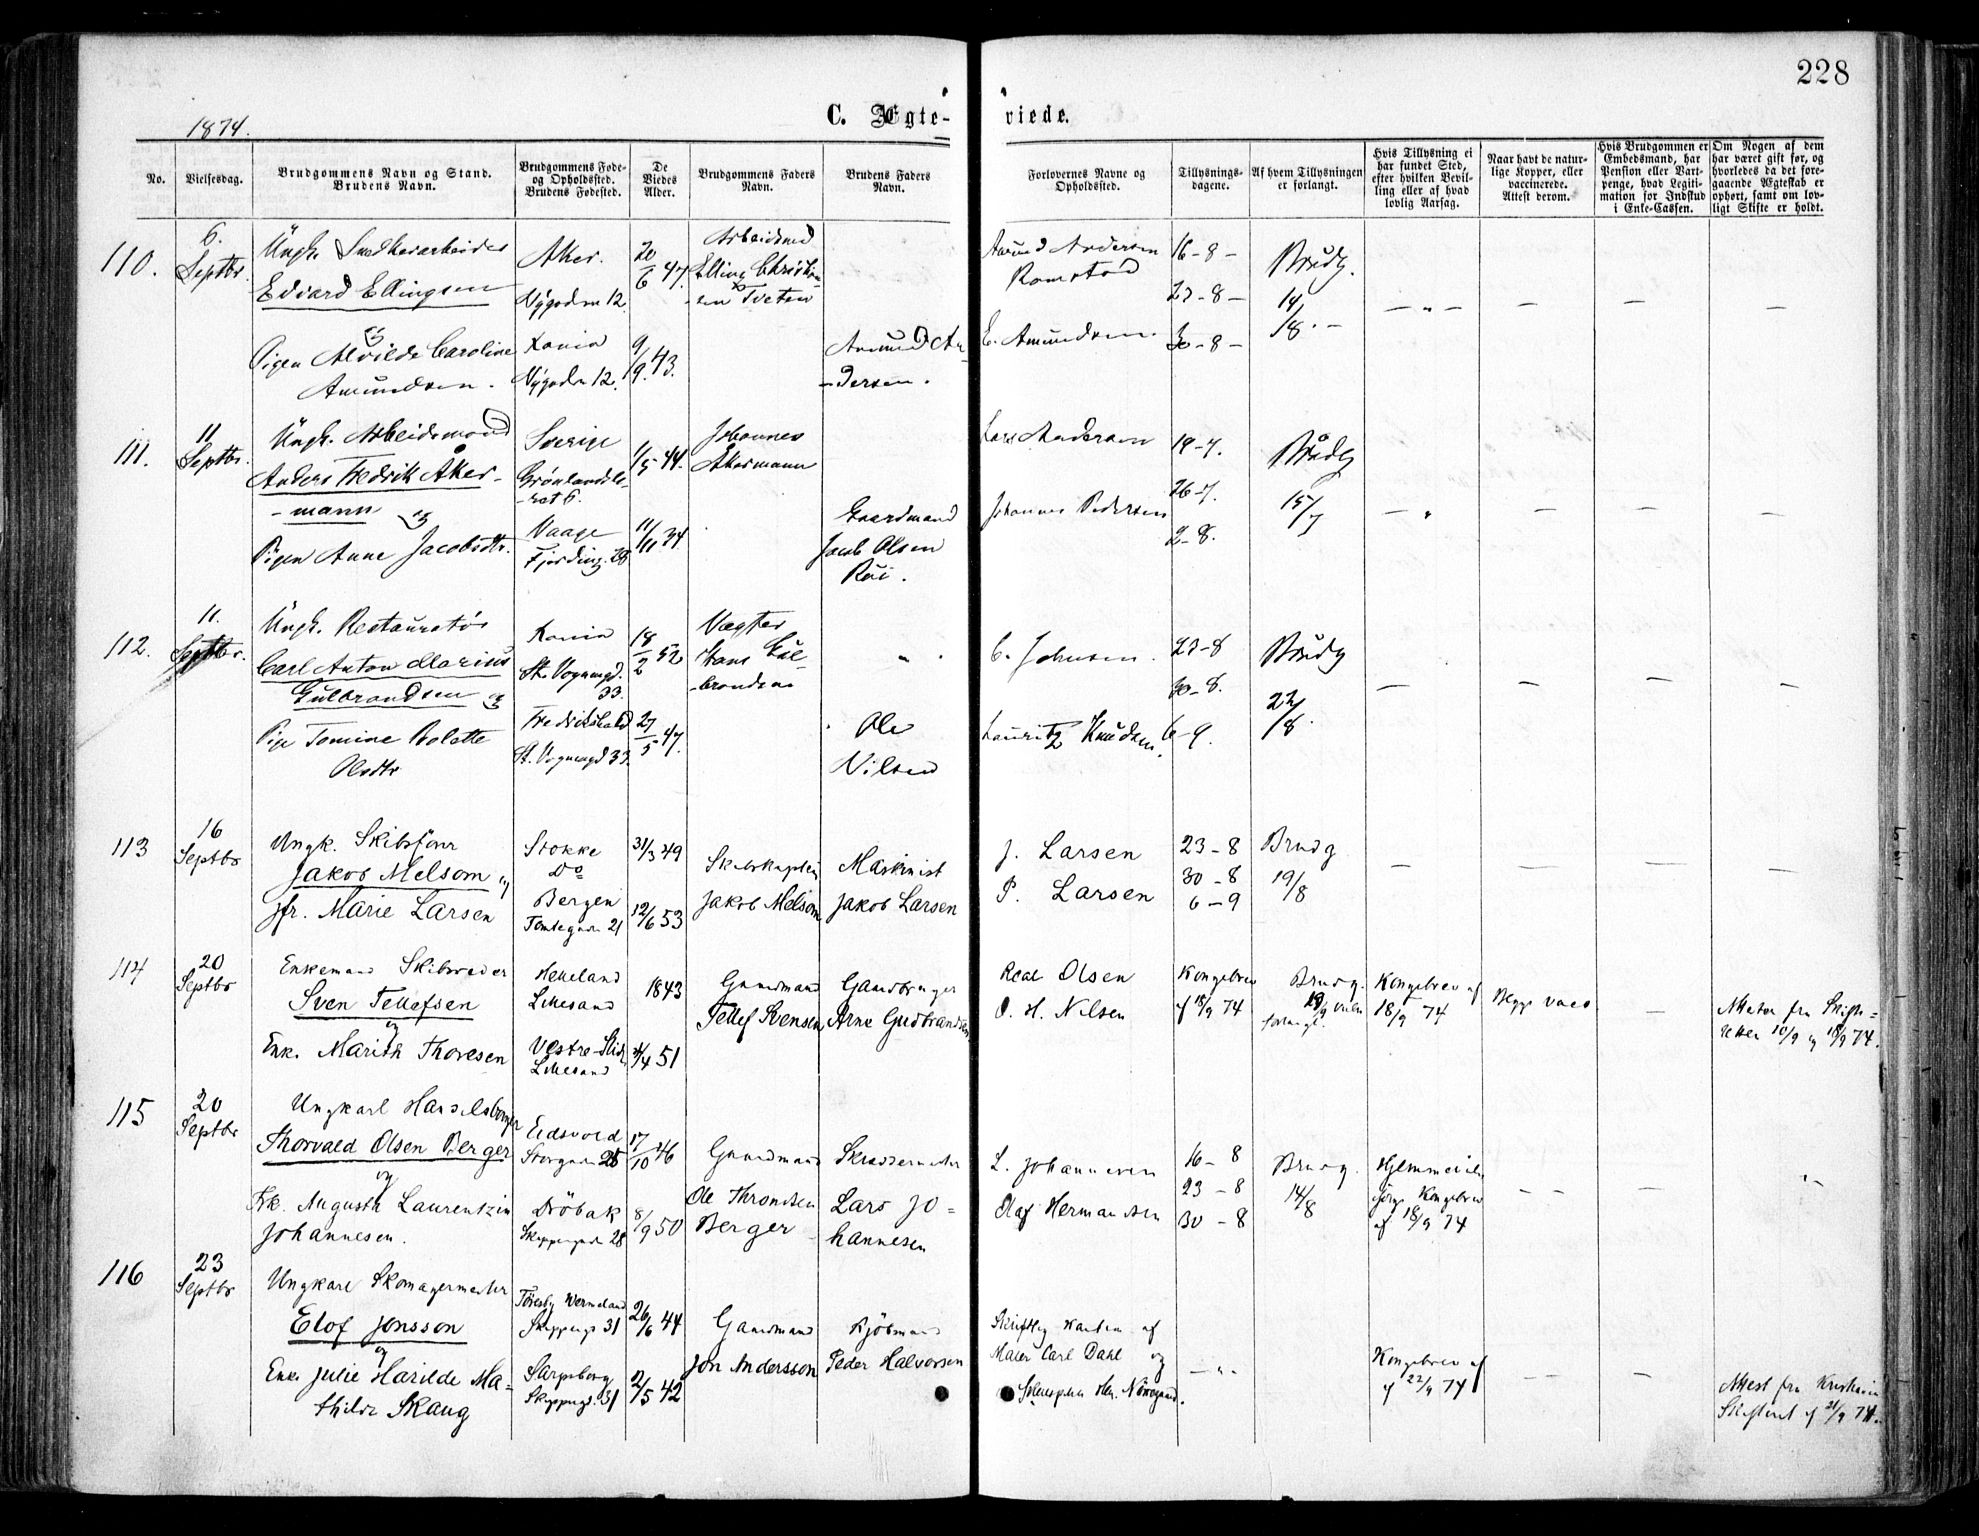 228
1874.
C. Ægteviede.
No.
Vielsesdag.
Brudgommens Navn og Stand.
Brudens Navn.
Brudgommens Føde-
og Opholdssted.
Brudens Fødested.
De
Viedes
Alder.
Brudgommens Faders
Navn.
Brudens Faders
Navn.
Forlovernes Navne og
Opholdssted.
Tillysnings-
dagene.
Af hvem Tillysningen
er forlangt.
Hvis Tillysning ei
har fundet Sted,
efter hvilken Bevil-
ling eller af hvad
lovlig Aarsag.
Naar havt de natur-
lige Kopper, eller
vaccinerede.
Attest derom.
Hvis Brudgommen er
Embedsmand, har
Pension eller Vart-
penge, hvad Legiti-
mation for Indskud
i Enke-Cassen.
Om Nogen af dem
har været gift før, og
hvorledes da det fore-
gaaende Ægteskab er
ophørt, samt om lov-
ligt Skifte er holdt.
110.
6.
Septbr.
Ungk. Snedkerarbeider
Edvard Ellingsen
og
Pigen Alvilde Caroline
Amundsen.
Aker.
Nygaden 12
Xania
Nygaden 12.
20/6 47.
9/9. 43.
Arbeidsmd
Elling Christian-
sen Tveten
Amund An-
dersen.
Amund Andersen
Ramstad
E. Amundsen.
16-8-
23-8-
30-8-
Brudg.
14/8.-
111.
11
Septbr.
Ungk. Arbeidsmand
Anders Fredrik Åker-
-mann og
Pigen Anne Jacobsdtr.
Sverige
Grønlandsle-
-ret 6.
Vaage
Fjerding. 28
1/5 44.
11/11 34
Johannes
Åkermann
Gaardmand
Jacob Olsen
Rui.
Lars Andersen
Johannes Pedersen
19-7.
26-7.
2-8.
Brudg
15/7
112.
11.
Septbr.
Ungk. Restauratør
Carl Anton Marius
Gulbrandsen og
Pige Tomine Bolette
Olsdtr
Xania
St. Vognmgd.
33.
Fredrikshald
St. Vognmgd 33.
18/2 52
27/5 47.
Vægter
Hans Gul-
brandsen
Ole
Nilsen
C. Johnsen.
Lauritz Knudsen.
23-8
30-8.
6-9.
Brudg
22/8.
113
16
Septbr
Ungk. Skibsfører
Jakob Melsom og
Jfr. Marie Larsen
Stokke
Do
Bergen
Tomtegaden 21
31/3 49
12/6 53
Skibskaptein
Jakob Melsom
Maskinist
Jakob Larsen
J. Larsen
P. Larsen
23-8
30-8
6-9
Brudg
19/8
114
20
Septbr
Enkemand Skibsreder
Sven Tellefsen
og
Enke Marith Thoresen
Lillesand
Vestre-Slidre
Lillesand
1843
51
Gaardmand
Tellef Svensen
Gaardbruger
Arne Gudbrandsen
Olsen
O. H. Nilsen
Kongebrev
af 18/9 74
Brudg.
Kongebrev af
18/9 74
Begge vacc.
Attester fra Skifte-
retten 10/9 og 18/9 74.
115
20
Septbr
Ungkarl Handelsborger
Thorvald Olsen Berger
og
Frk. Augusta Laurentzin
Johannesen.
Eidsvold
Storgaden 25
Dröbak
Skippergaden 28
17/10 46
8/9 50
Gaardmand
Ole Throndsen
Berger
Skreddermester
Lars Jo-
hannesen
L. Johannesen
Olaf Hermansen
16-8
23-8
30-8
Brudg.
14/8
Hjemmevielse
ifølge Kongebrev
af 18/9 74
116
23
Septbr
Ungkarl Skomagermester
Elof Jonsson
og
Enke Julie Harilde Ma-
thilde Skaug
Wermeland
Skipperg. 31
Sarpsborg
Skipperg. 31
26/6 44
2/5 42
Gaardmand
Jon Andersson
Kjöbmand
Peder Halvorsen
Skriftlig Kaution af
Maler Carl Dahl og
Kongebrev af
22/9 74
Attest fra Kristiania
Skifteret af 21/9 74.